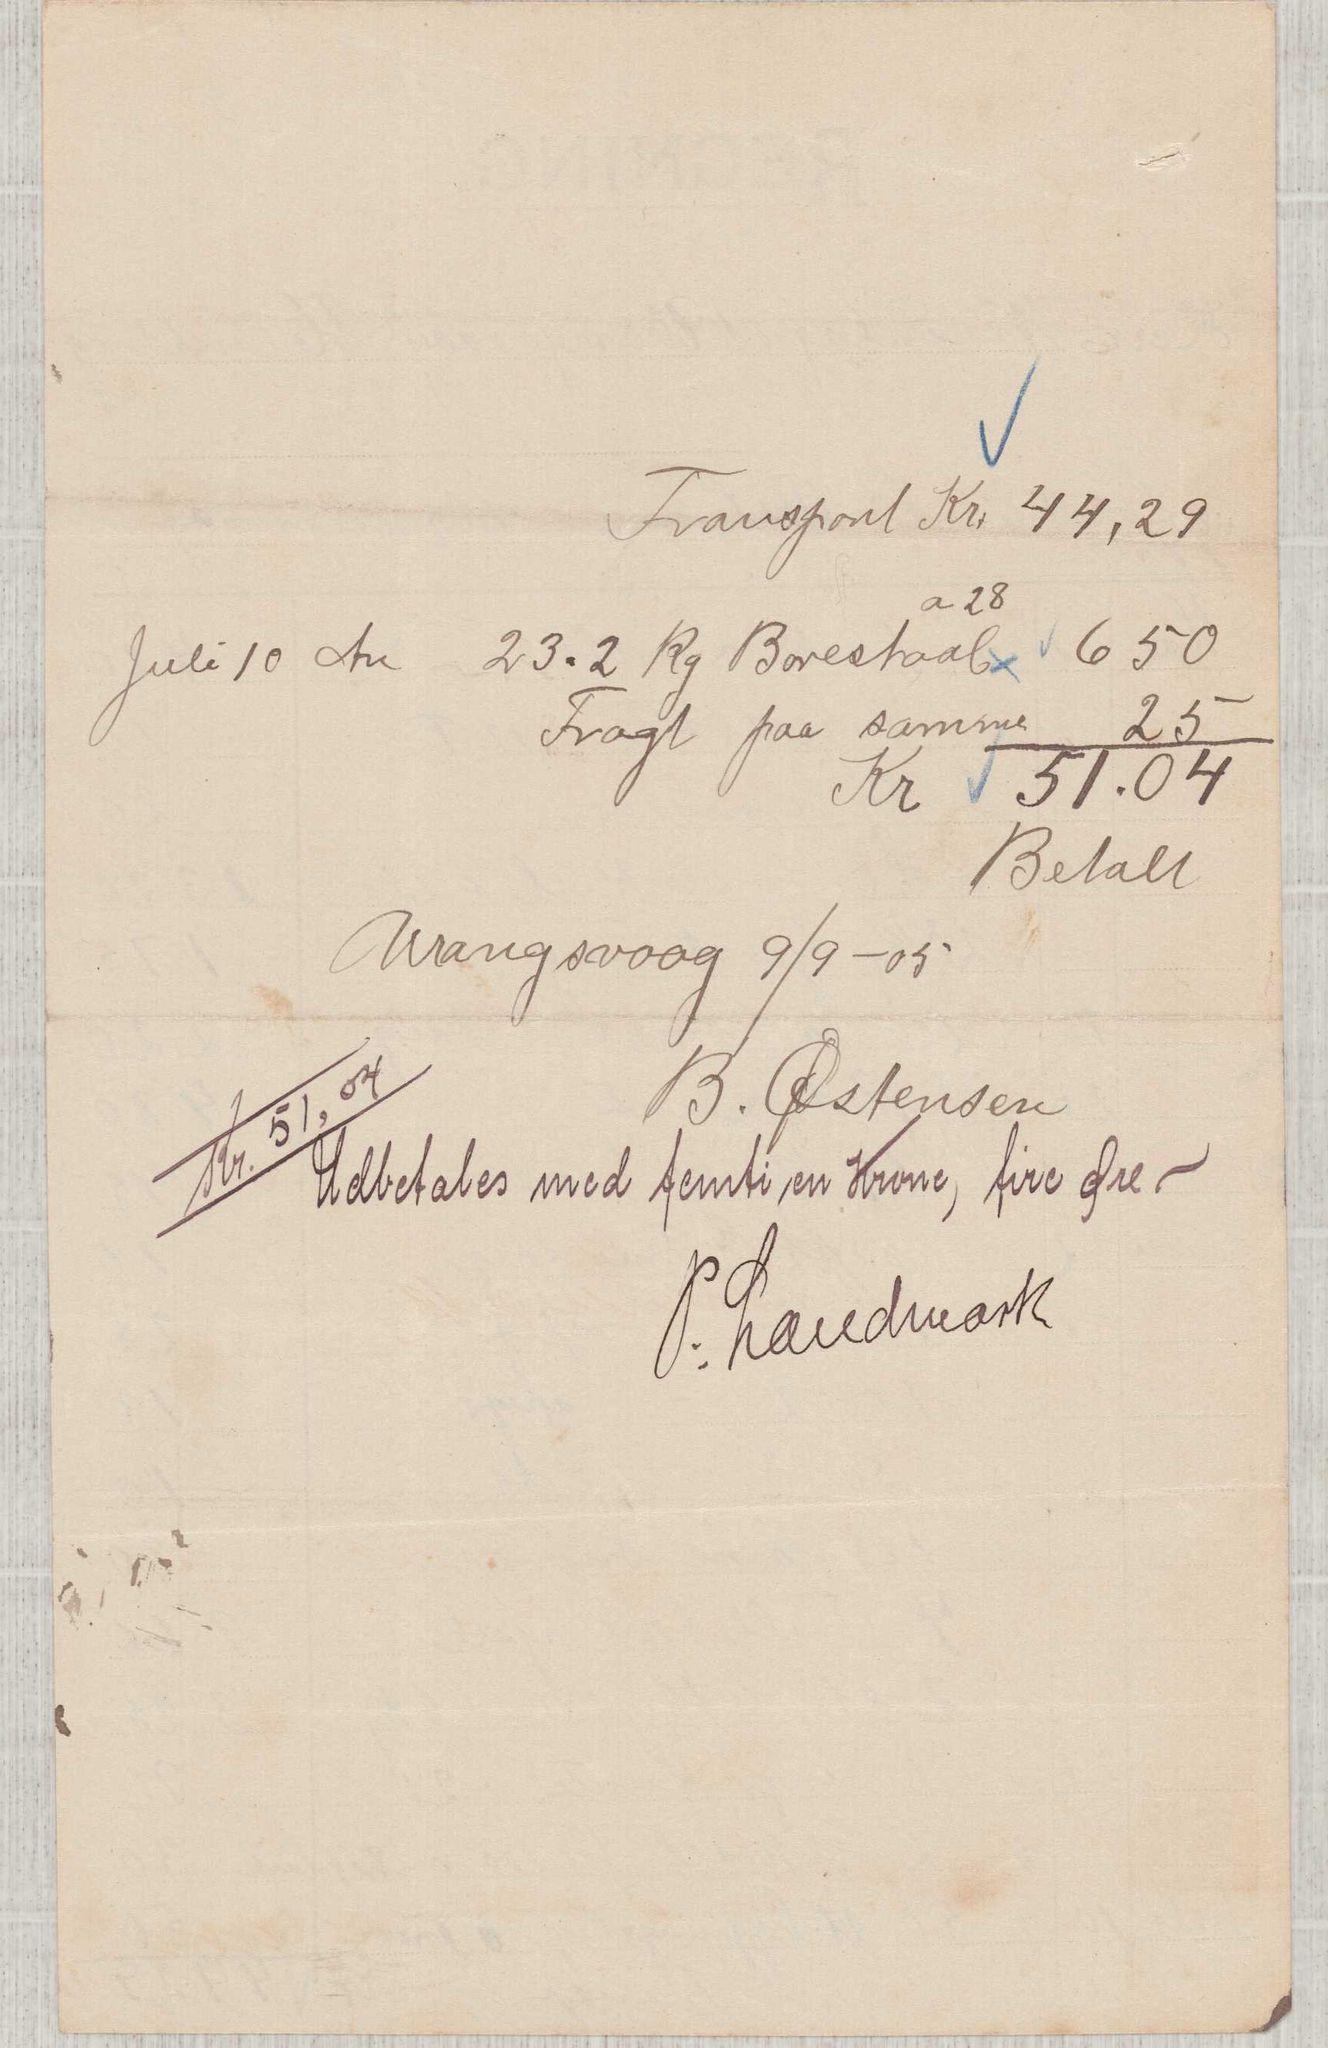 Transport Kr. 44,29
a 28
Juli 10 An 23.2 Kg Borestaal 650
Fragt paa samme 25
Kr 51.04
Betalt
Vrangsvaag 9/9-05
B. Østensen
Kr. 51,04
Udbetales med femti en Krone, fire Øre
P. Landmark